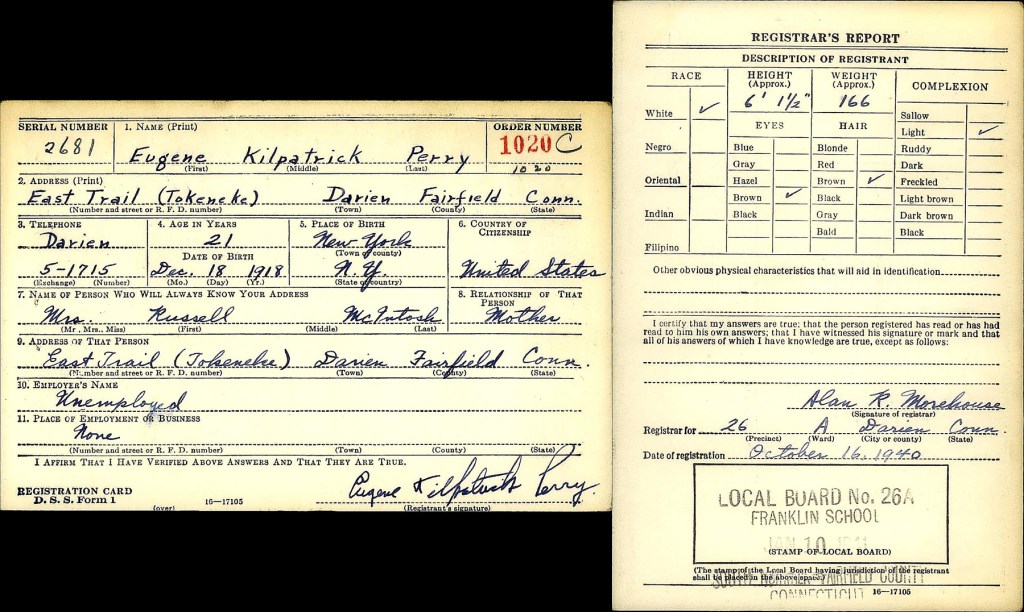 SERIAL NUMBER 1. NAME (Print) ORDER NUMBER
2681 Eugene Kilpatrick Perry 1020 C
(First) (Middle) (Last) 1020
2. ADDRESS (Print)
East Trail (Tokeneke) Darien Fairfield Conn.
(Number and street or R. F. D. number) (Town) (County) (State)
3. TELEPHONE 4. AGE IN YEARS 5. PLACE OF BIRTH 6. COUNTRY OF CITIZENSHIP
Darien 21 New York
DATE OF BIRTH (Town or county)
5-1715 Dec. 18 1918 N.Y. United States
(Exchange) (Number) (Mo.) (Day) (Yr.) (State or country)
7. NAME OF PERSON WHO WILL ALWAYS KNOW YOUR ADDRESS 8. RELATIONSHIP OF THAT PERSON
Mrs. Russell McIntosh Mother
(Mr., Mrs., Miss) (First) (Middle) (Last)
9. ADDRESS OF THAT PERSON
East Trail (Tokeneke) Darien Fairfield Conn.
(Number and street or R. F. D. number) (Town) (County) (State)
10. EMPLOYER'S NAME
Unemployed
11. PLACE OF EMPLOYMENT OR BUSINESS
None
(Number and street or R. F. D. number) (Town) (County) (State)
I AFFIRM THAT I HAVE VERIFIED ABOVE ANSWERS AND THAT THEY ARE TRUE.
Eugene Kilpatrick Perry.
REGISTRATION CARD
D. S. S. Form 1 16—17105 (Registrant's signature)
(over)
REGISTRAR'S REPORT
DESCRIPTION OF REGISTRANT
RACE HEIGHT (Approx.) WEIGHT (Approx.) COMPLEXION
6' 1½" 166
White ✓ Sallow
EYES HAIR Light ✓
Negro Blue Blonde Ruddy
Gray Red Dark
Oriental Hazel Brown ✓ Freckled
Brown ✓ Black Light brown
Indian Black Gray Dark brown
Bald Black
Filipino
Other obvious physical characteristics that will aid in identification
I certify that my answers are true; that the person registered has read or has had
read to him his own answers; that I have witnessed his signature or mark and that
all of his answers of which I have knowledge are true, except as follows:
Alan R. Morehouse
(Signature of registrar)
Registrar for 26 A Darien Conn.
(Precinct) (Ward) (City or county) (State)
Date of registration October 16, 1940
LOCAL BOARD No. 26A
FRANKLIN SCHOOL
JAN 10
(STAMP OF LOCAL BOARD)
(The stamp of the Local Board having jurisdiction of the registrant
shall be placed in the above space.)
FAIRFIELD COUNTY
CONNECTICUT 16—17105